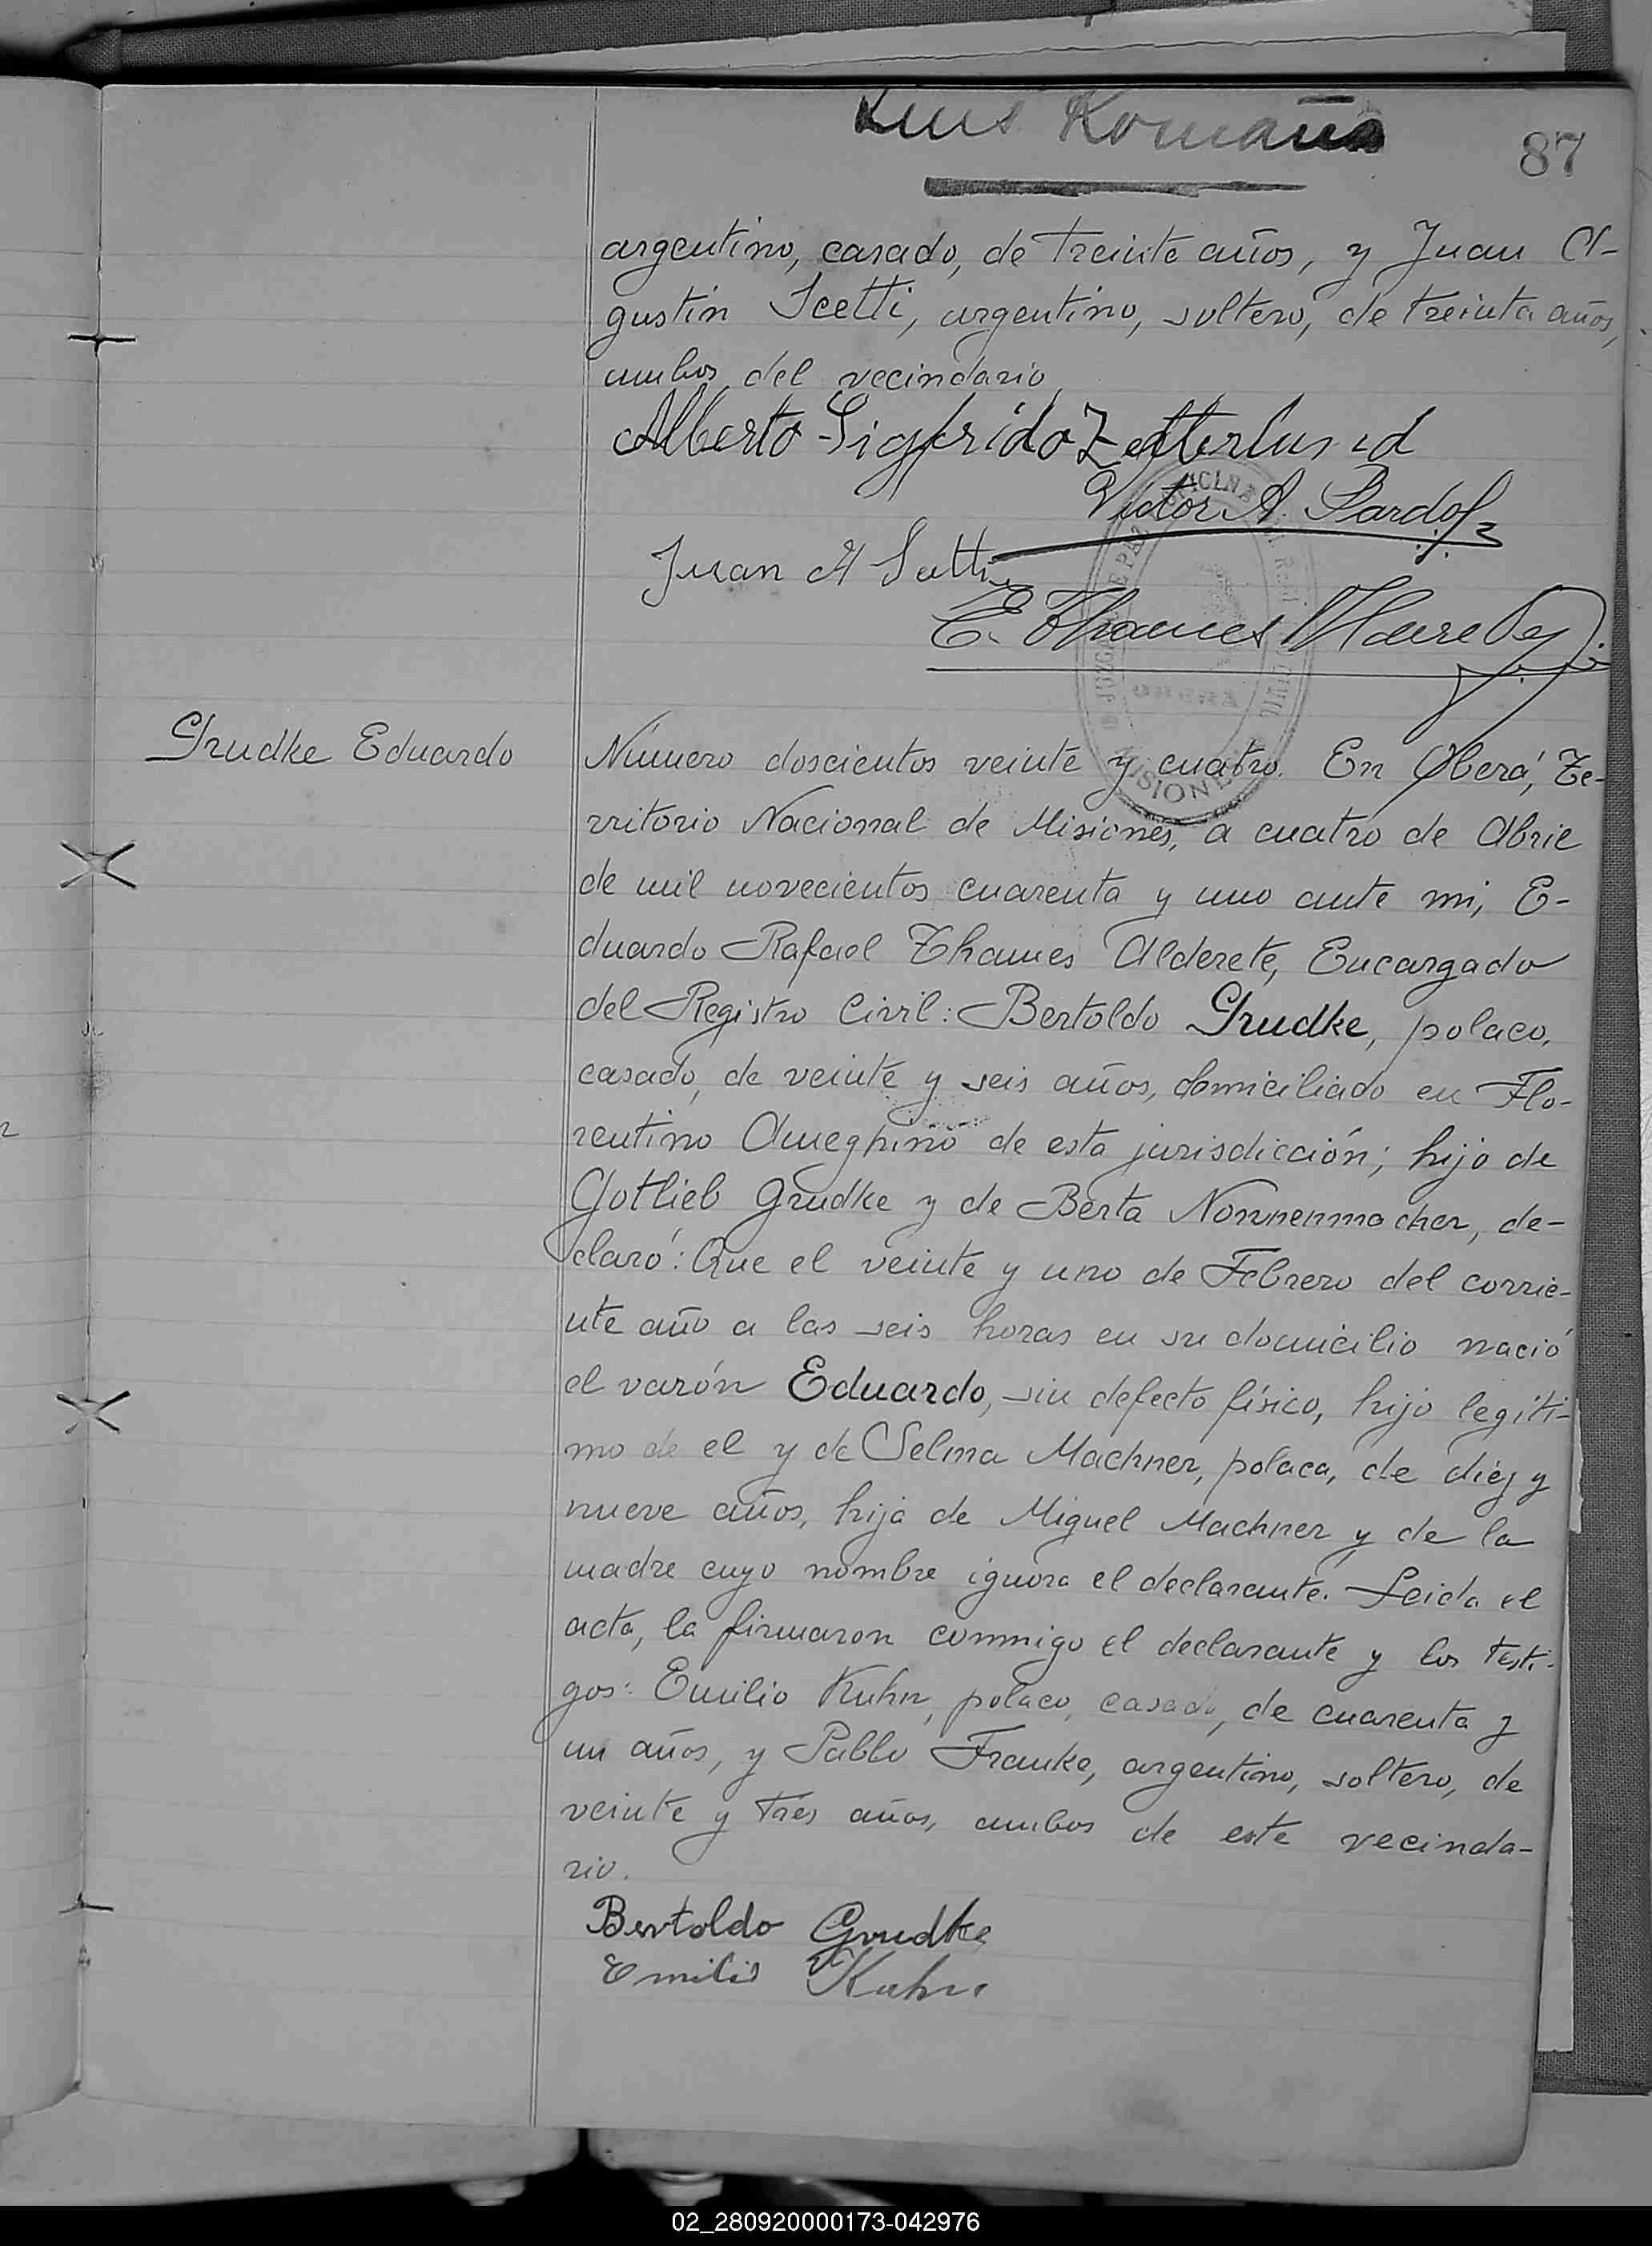 Luis Romaña
87
argentino, casado, de treinta años, y Juan A-
gustin Scetti, argentino, soltero, de treinta años,
ambos del vecindario
Alberto Sigfrido Zetterlund
Victor A. Pardo
Juan A
E. Thames Alderete
JUZGADO DE PAZ
OBERÁ
MISIONES
Grudke Eduardo
Número doscientos veinte y cuatro. En Oberá, Te-
rritorio Nacional de Misiones, a cuatro de Abril
de mil novecientos cuarenta y uno ante mi, E-
duardo Rafael Thames Alderete, Encargado
del Registro Civil: Bertoldo Grudke, polaco,
casado, de veinte y seis años, domiciliado en Flo-
rentino Ameghino de esta jurisdicción; hijo de
Gotlieb Grudke y de Berta Nonnenmacher, de-
claró: Que el veinte y uno de Febrero del corrie-
nte año a las seis horas en su domicilio nació
el varón Eduardo, sin defecto físico, hijo legíti-
mo de el y de Selma Machner, polaca, de diez y
nueve años, hija de Miguel Machner y de la
madre cuyo nombre ignora el declarante. Leida el
acta, la firmaron conmigo el declarante y los testi-
gos: Emilio Kuhn, polaco, casado, de cuarenta y
un años, y Pablo Franke, argentino, soltero, de
veinte y tres años, ambos de este vecinda-
rio.
Bertoldo Grudke
Emilio Kuhn
02_280920000173-042976